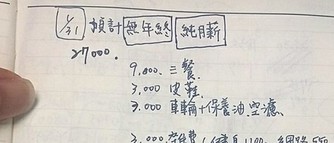 1/31 預計 無年終 純月薪
27000.
9,000. 三餐
3,000 皮鞋
3,000 車輪+保養油.空濾.